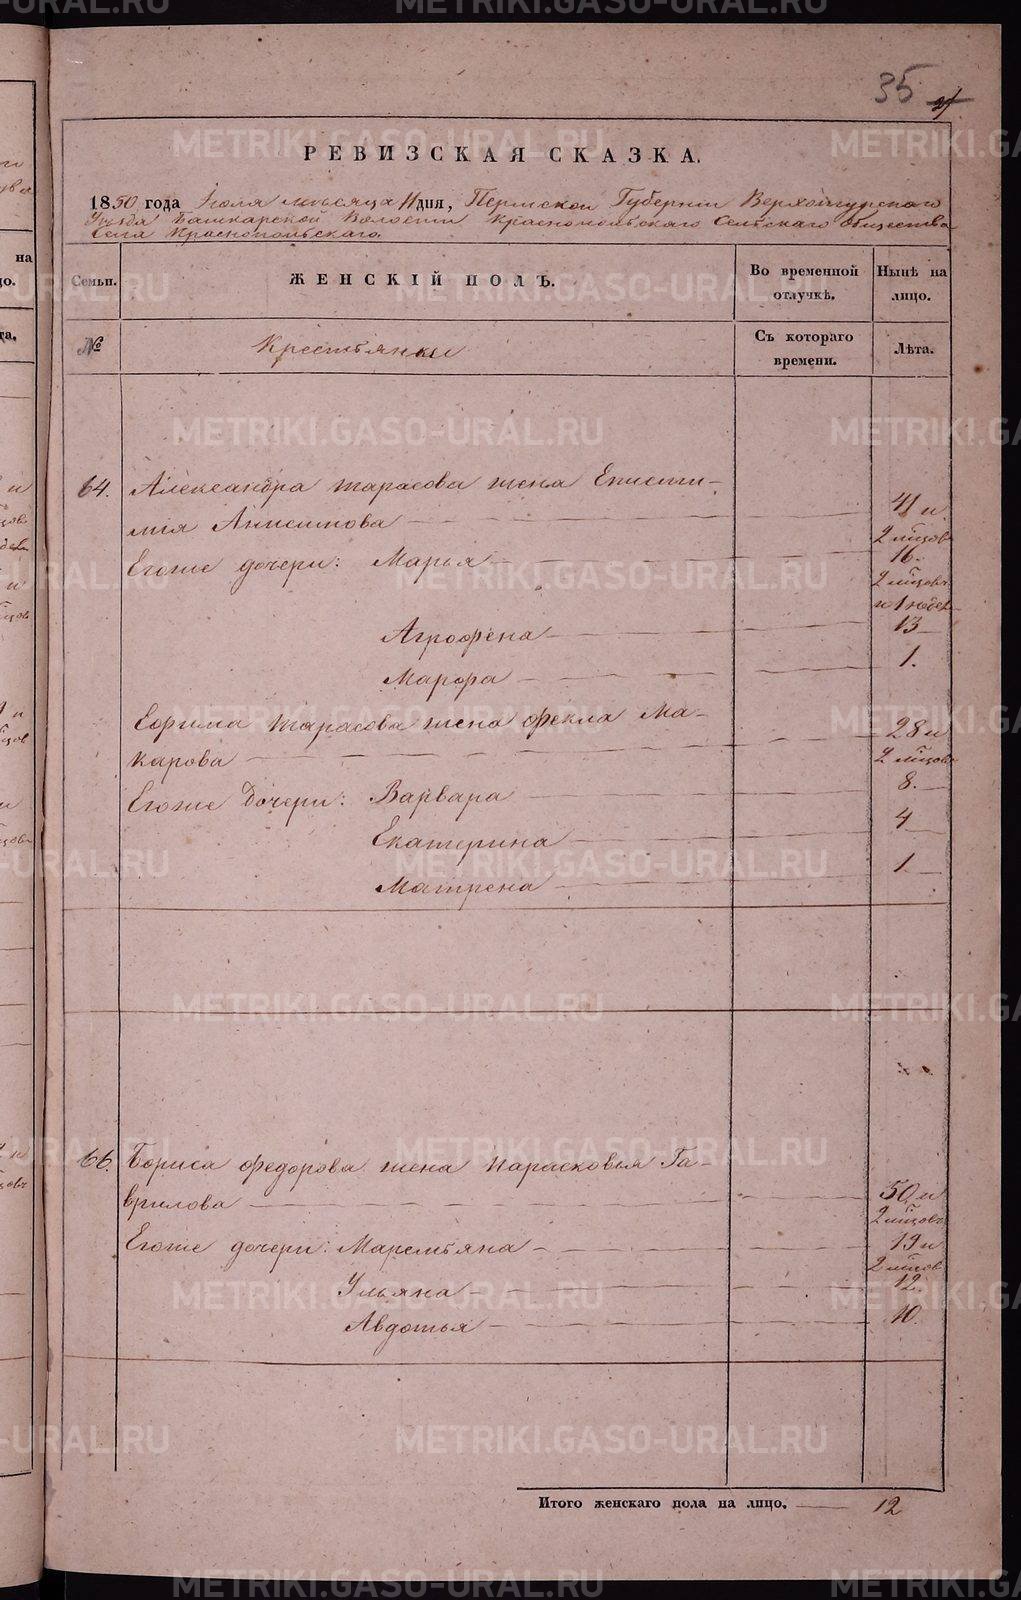 35
РЕВИЗСКАЯ СКАЗКА.
1850 года Іюля мѣсяца 11 дня, Пермской Губерніи Верхотурскаго
Уѣзда Башкарской Волости Краснопольскаго Сельскаго Общества
Села Краснопольскаго.
Семьи. ЖЕНСКІЙ ПОЛЪ. Во временной отлучкѣ. Нынѣ на лицо.
№ Крестьянки Съ котораго времени. Лѣта.
64. Александра Тарасова жена Еписти-
мія Анисимова 41 и
2 мѣсов
Егоже дочери: Марья 16.
2 мѣсовъ
и 1 недел
Агрофена 13
Марфа 1.
Ефима Тарасова жена Фекла Ма-
карова 28 и
2 мѣсов
Егоже Дочери: Варвара 8.
Екатерина 4
Матрена 1.
66. Бориса Федорова жена Парасковья Га-
врилова 50 и
2 мѣсов
Егоже дочери: Маремьяна 19 и
2 мѣсов
Ульяна 12.
Авдотья 10.
Итого женскаго пола на лицо. 12
METRIKI.GASO-URAL.RU